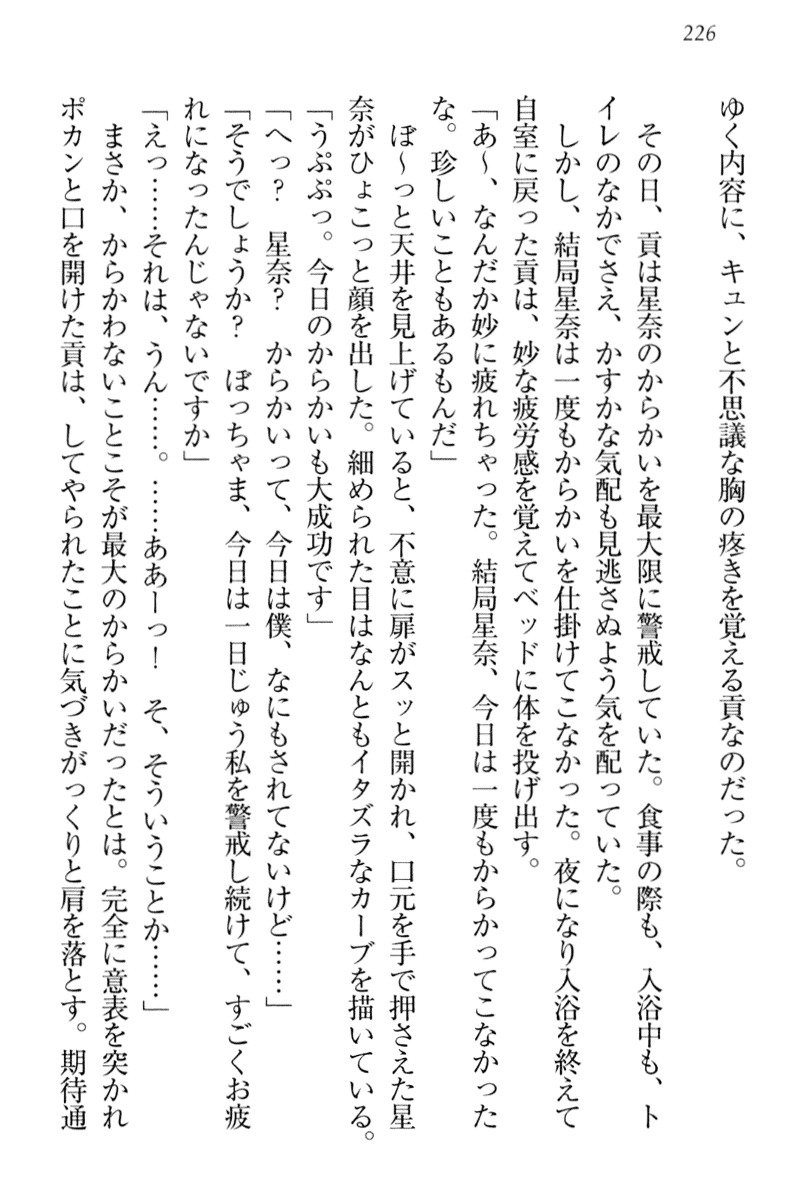 226
ゆく内容に、キュンと不思議な胸の疼きを覚える貢なのだった。
その日、貢は星奈のからかいを最大限に警戒していた。食事の際も、入浴中も、ト
イレのなかでさえ、かすかな気配も見逃さぬよう気を配っていた。
しかし、結局星奈は一度もからかいを仕掛けてこなかった。夜になり入浴を終えて
自室に戻った貢は、妙な疲労感を覚えてベッドに体を投げ出す。
「あ〜、なんだか妙に疲れちゃった。結局星奈、今日は一度もからかってこなかった
な。珍しいこともあるもんだ」
ぼ〜っと天井を見上げていると、不意に扉がスッと開かれ、口元を手で押さえた星
奈がひょこっと顔を出した。細められた目はなんともイタズラなカーブを描いている。
「うぷぷっ。今日のからかいも大成功です」
「へっ？　星奈？　からかいって、今日は僕、なにもされてないけど……」
「そうでしょうか？　ぼっちゃま、今日は一日じゅう私を警戒し続けて、すごくお疲
れになったんじゃないですか」
「えっ……それは、うん……。……ああーっ！　そ、そういうことか……」
まさか、からかわないことこそが最大のからかいだったとは。完全に意表を突かれ
ポカンと口を開けた貢は、してやられたことに気づきがっくりと肩を落とす。期待通